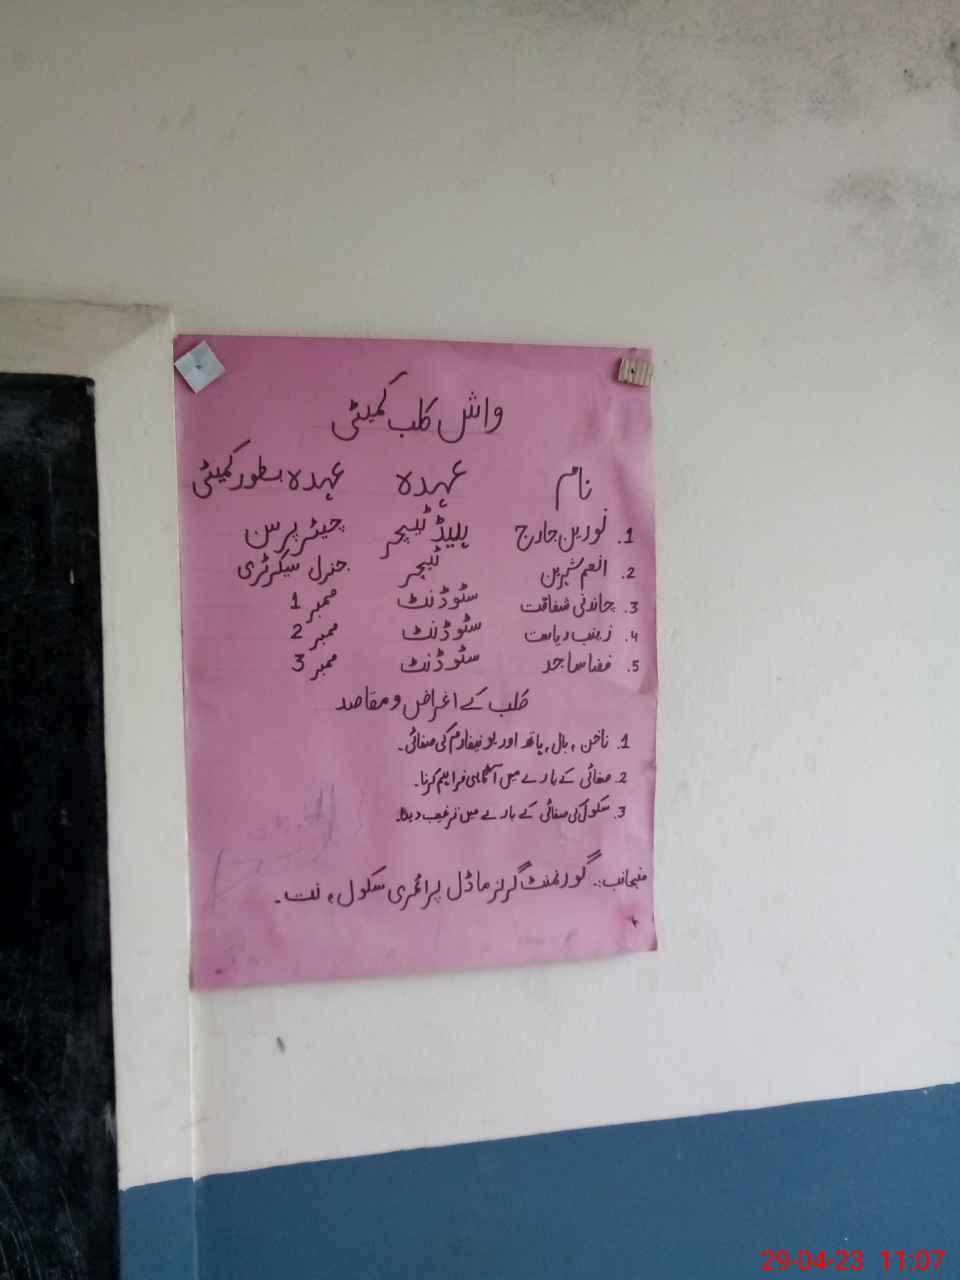 واش کلب کمیٹی
نام عہدہ عہدہ بطور کمیٹی
1. نورین جارج ہیڈ ٹیچر چیئر پرسن
2. انعم شہرین ٹیچر جنرل سیکرٹری
3. چاندنی شفاقت سٹوڈنٹ ممبر 1
4. زینب ریاست سٹوڈنٹ ممبر 2
5. فضا ساجد سٹوڈنٹ ممبر 3
کلب کے اغراض و مقاصد
1. ناخن، بال، ہاتھ اور یونیفارم کی صفائی۔
2. صفائی کے بارے میں آگاہی فراہم کرنا۔
3. سکول کی صفائی کے بارے میں ترغیب دینا۔
منجانب:۔ گورنمنٹ گرلز ماڈل پرائمری سکول، نت۔
29-04-23 11:07